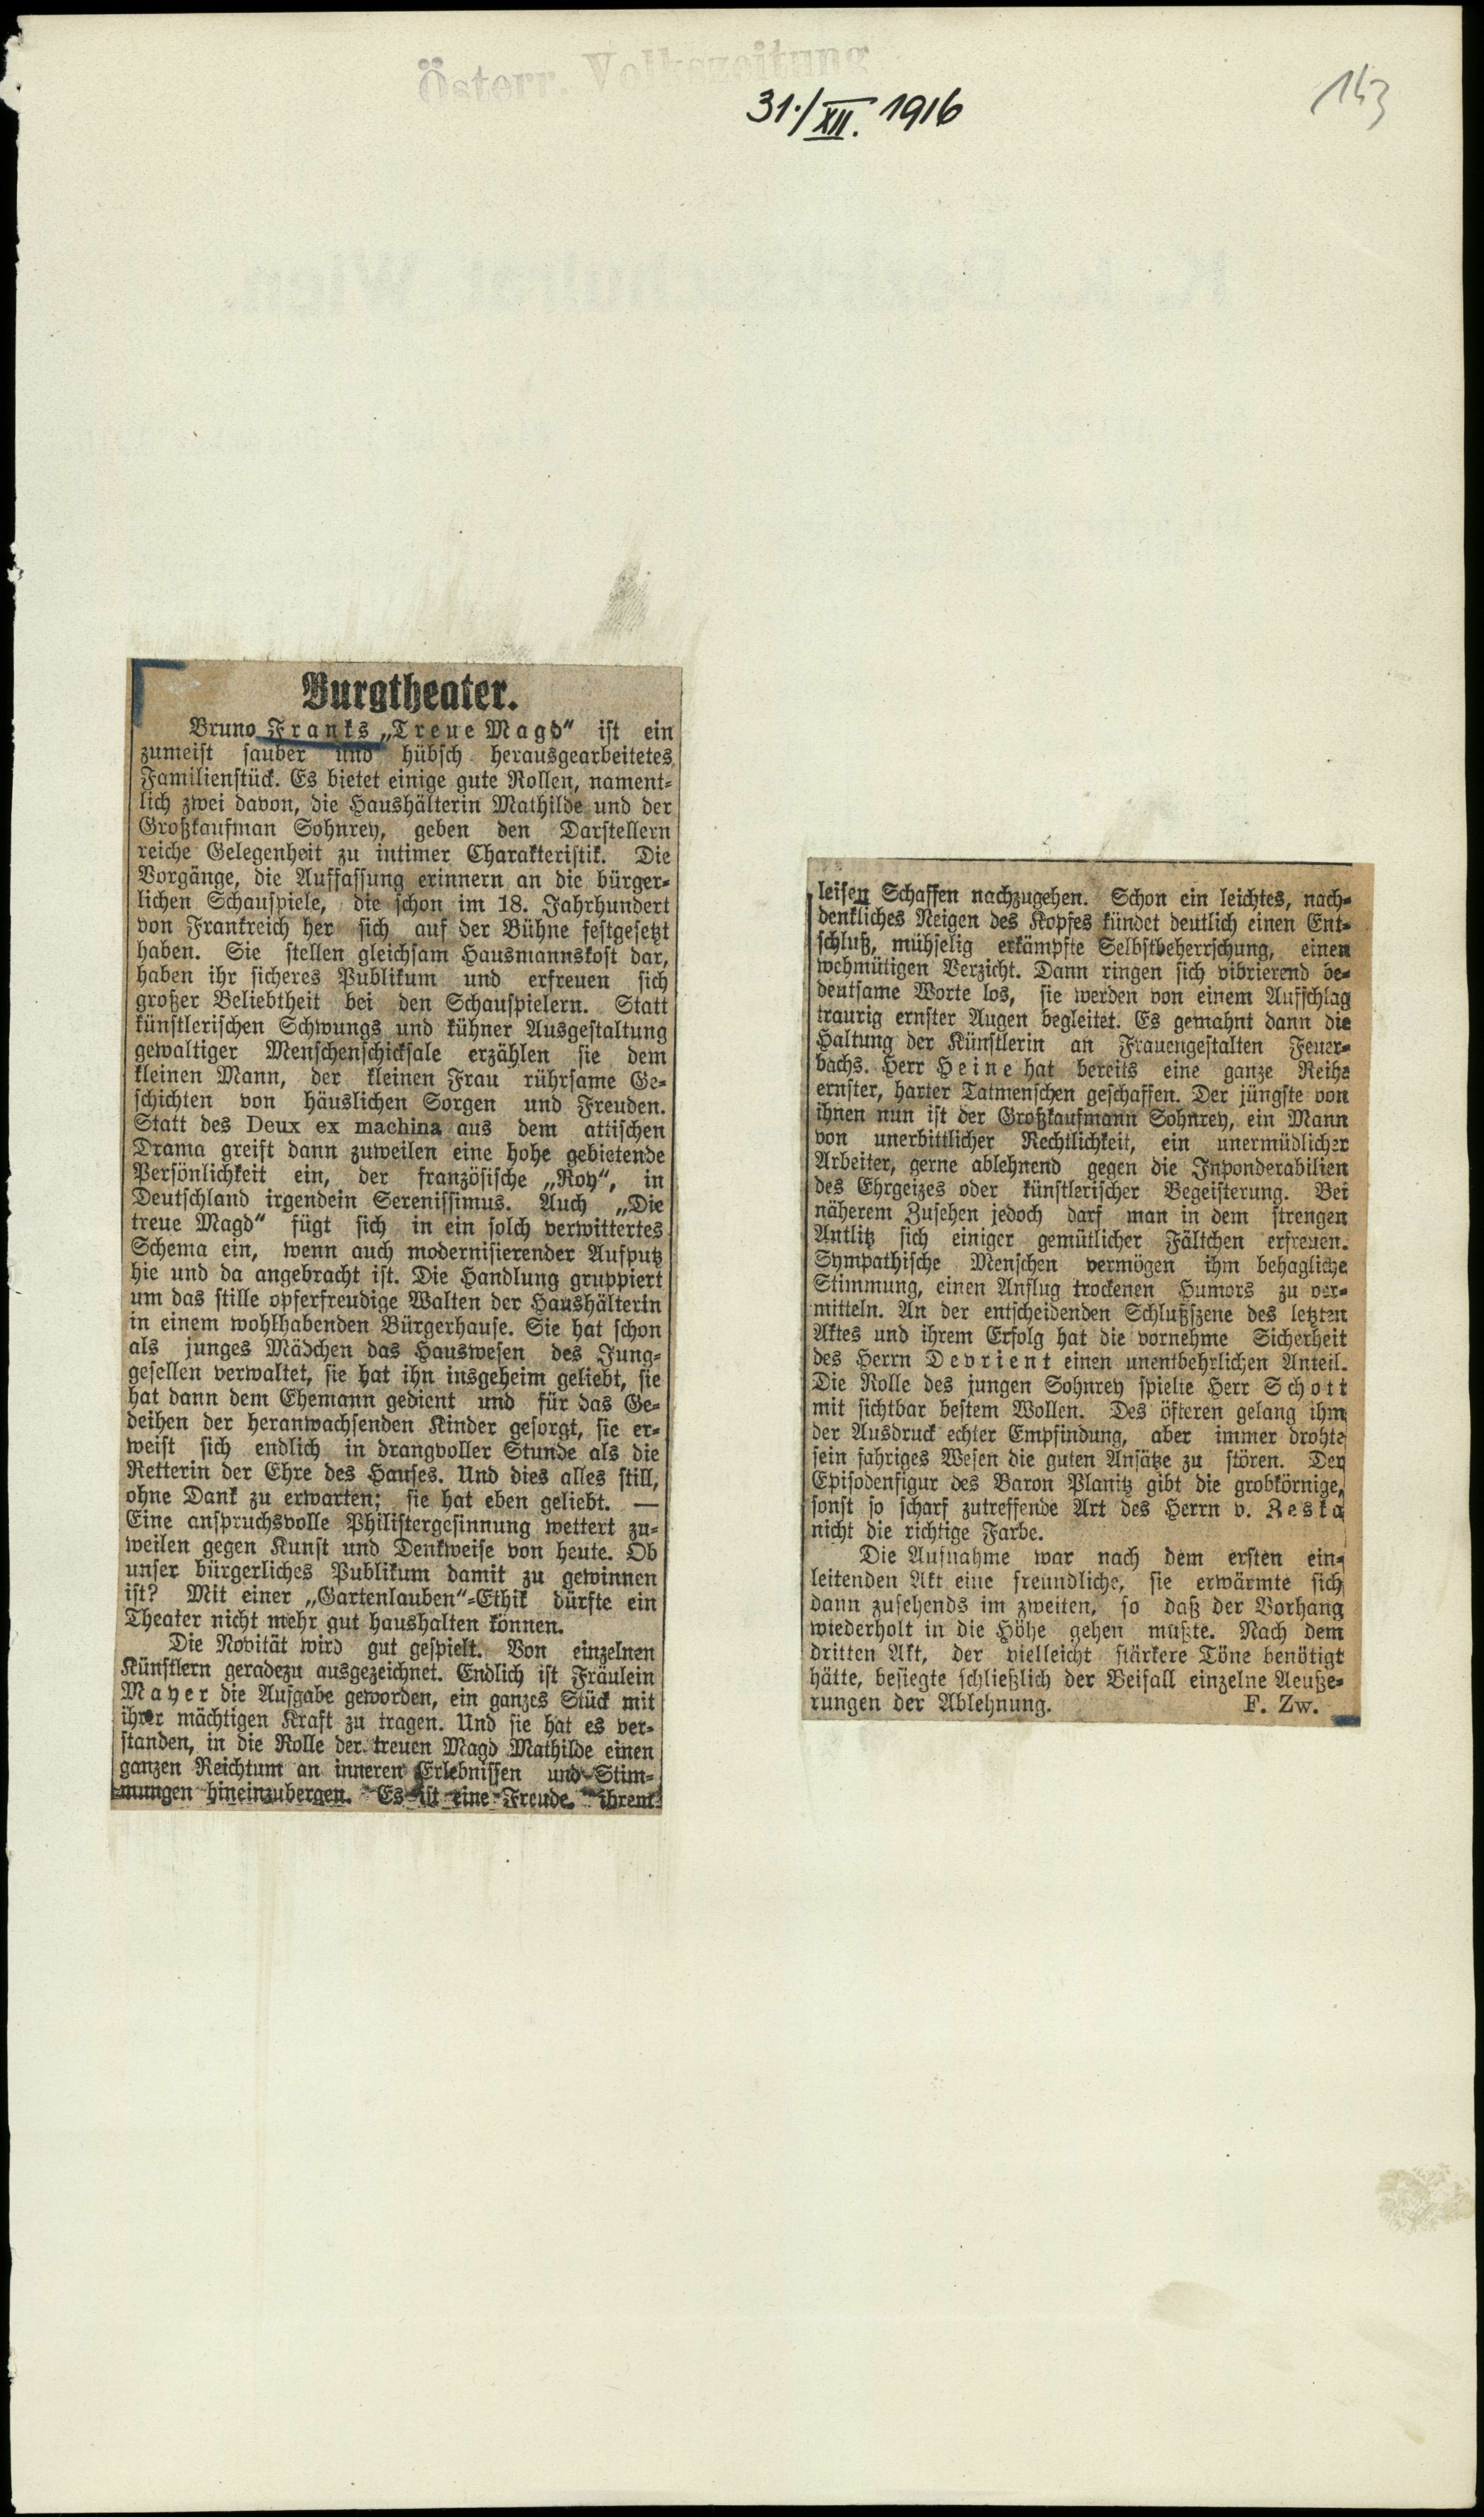 Österr. Volkszeitung
31./XII. 1916
143
Burgtheater.
Bruno Franks „Treue Magd“ ist ein
zumeist sauber und hübsch herausgearbeitetes
Familienstück. Es bietet einige gute Rollen, nament-
lich zwei davon, die Haushälterin Mathilde und der
Großkaufman Sohnrey, geben den Darstellern
reiche Gelegenheit zu intimer Charakteristik. Die
Vorgänge, die Auffassung erinnern an die bürger-
lichen Schauspiele, die schon im 18. Jahrhundert
von Frankreich her sich auf der Bühne festgesetzt
haben. Sie stellen gleichsam Hausmannskost dar,
haben ihr sicheres Publikum und erfreuen sich
großer Beliebtheit bei den Schauspielern. Statt
künstlerischen Schwungs und kühner Ausgestaltung
gewaltiger Menschenschicksale erzählen sie dem
kleinen Mann, der kleinen Frau rührsame Ge-
schichten von häuslichen Sorgen und Freuden.
Statt des Deux ex machina aus dem attischen
Drama greift dann zuweilen eine hohe gebietende
Persönlichkeit ein, der französische „Roy“, in
Deutschland irgendein Serenissimus. Auch „Die
treue Magd“ fügt sich in ein solch verwittertes
Schema ein, wenn auch modernisierender Aufputz
hie und da angebracht ist. Die Handlung gruppiert
um das stille opferfreudige Walten der Haushälterin
in einem wohlhabenden Bürgerhause. Sie hat schon
als junges Mädchen das Hauswesen des Jung-
gesellen verwaltet, sie hat ihn insgeheim geliebt, sie
hat dann dem Ehemann gedient und für das Ge-
deihen der heranwachsenden Kinder gesorgt, sie er-
weist sich endlich in drangvoller Stunde als die
Retterin der Ehre des Hauses. Und dies alles still,
ohne Dank zu erwarten; sie hat eben geliebt. —
Eine anspruchsvolle Philistergesinnung wettert zu-
weilen gegen Kunst und Denkweise von heute. Ob
unser bürgerliches Publikum damit zu gewinnen
ist? Mit einer „Gartenlauben“-Ethik dürfte ein
Theater nicht mehr gut haushalten können.
Die Novität wird gut gespielt. Von einzelnen
Künstlern geradezu ausgezeichnet. Endlich ist Fräulein
Mayer die Aufgabe geworden, ein ganzes Stück mit
ihrer mächtigen Kraft zu tragen. Und sie hat es ver-
standen, in die Rolle der treuen Magd Mathilde einen
ganzen Reichtum an inneren Erlebnissen und Stim-
mungen hineinzubergen. Es ist eine Freude, ihrem
leisen Schaffen nachzugehen. Schon ein leichtes, nach-
denkliches Neigen des Kopfes kündet deutlich einen Ent-
schluß, mühselig erkämpfte Selbstbeherrschung, einen
wehmütigen Verzicht. Dann ringen sich vibrierend be-
deutsame Worte los, sie werden von einem Aufschlag
traurig ernster Augen begleitet. Es gemahnt dann die
Haltung der Künstlerin an Frauengestalten Feuer-
bachs. Herr Heine hat bereits eine ganze Reihe
ernster, harter Tatmenschen geschaffen. Der jüngste von
ihnen nun ist der Großkaufmann Sohnrey, ein Mann
von unerbittlicher Rechtlichkeit, ein unermüdlicher
Arbeiter, gerne ablehnend gegen die Inponderabilien
des Ehrgeizes oder künstlerischer Begeisterung. Bei
näherem Zusehen jedoch darf man in dem strengen
Antlitz sich einiger gemütlicher Fältchen erfreuen.
Sympathische Menschen vermögen ihm behagliche
Stimmung, einen Anflug trockenen Humors zu ver-
mitteln. An der entscheidenden Schlußszene des letzten
Aktes und ihrem Erfolg hat die vornehme Sicherheit
des Herrn Devrient einen unentbehrlichen Anteil.
Die Rolle des jungen Sohnrey spielte Herr Schott
mit sichtbar bestem Wollen. Des öfteren gelang ihm
der Ausdruck echter Empfindung, aber immer drohte
sein fahriges Wesen die guten Ansätze zu stören. Der
Episodenfigur des Baron Planitz gibt die grobkörnige,
sonst so scharf zutreffende Art des Herrn v. Zeska
nicht die richtige Farbe.
Die Aufnahme war nach dem ersten ein-
leitenden Akt eine freundliche, sie erwärmte sich
dann zusehends im zweiten, so daß der Vorhang
wiederholt in die Höhe gehen mußte. Nach dem
dritten Akt, der vielleicht stärkere Töne benötigt
hätte, besiegte schließlich der Beifall einzelne Aeuße-
rungen der Ablehnung. F. Zw.